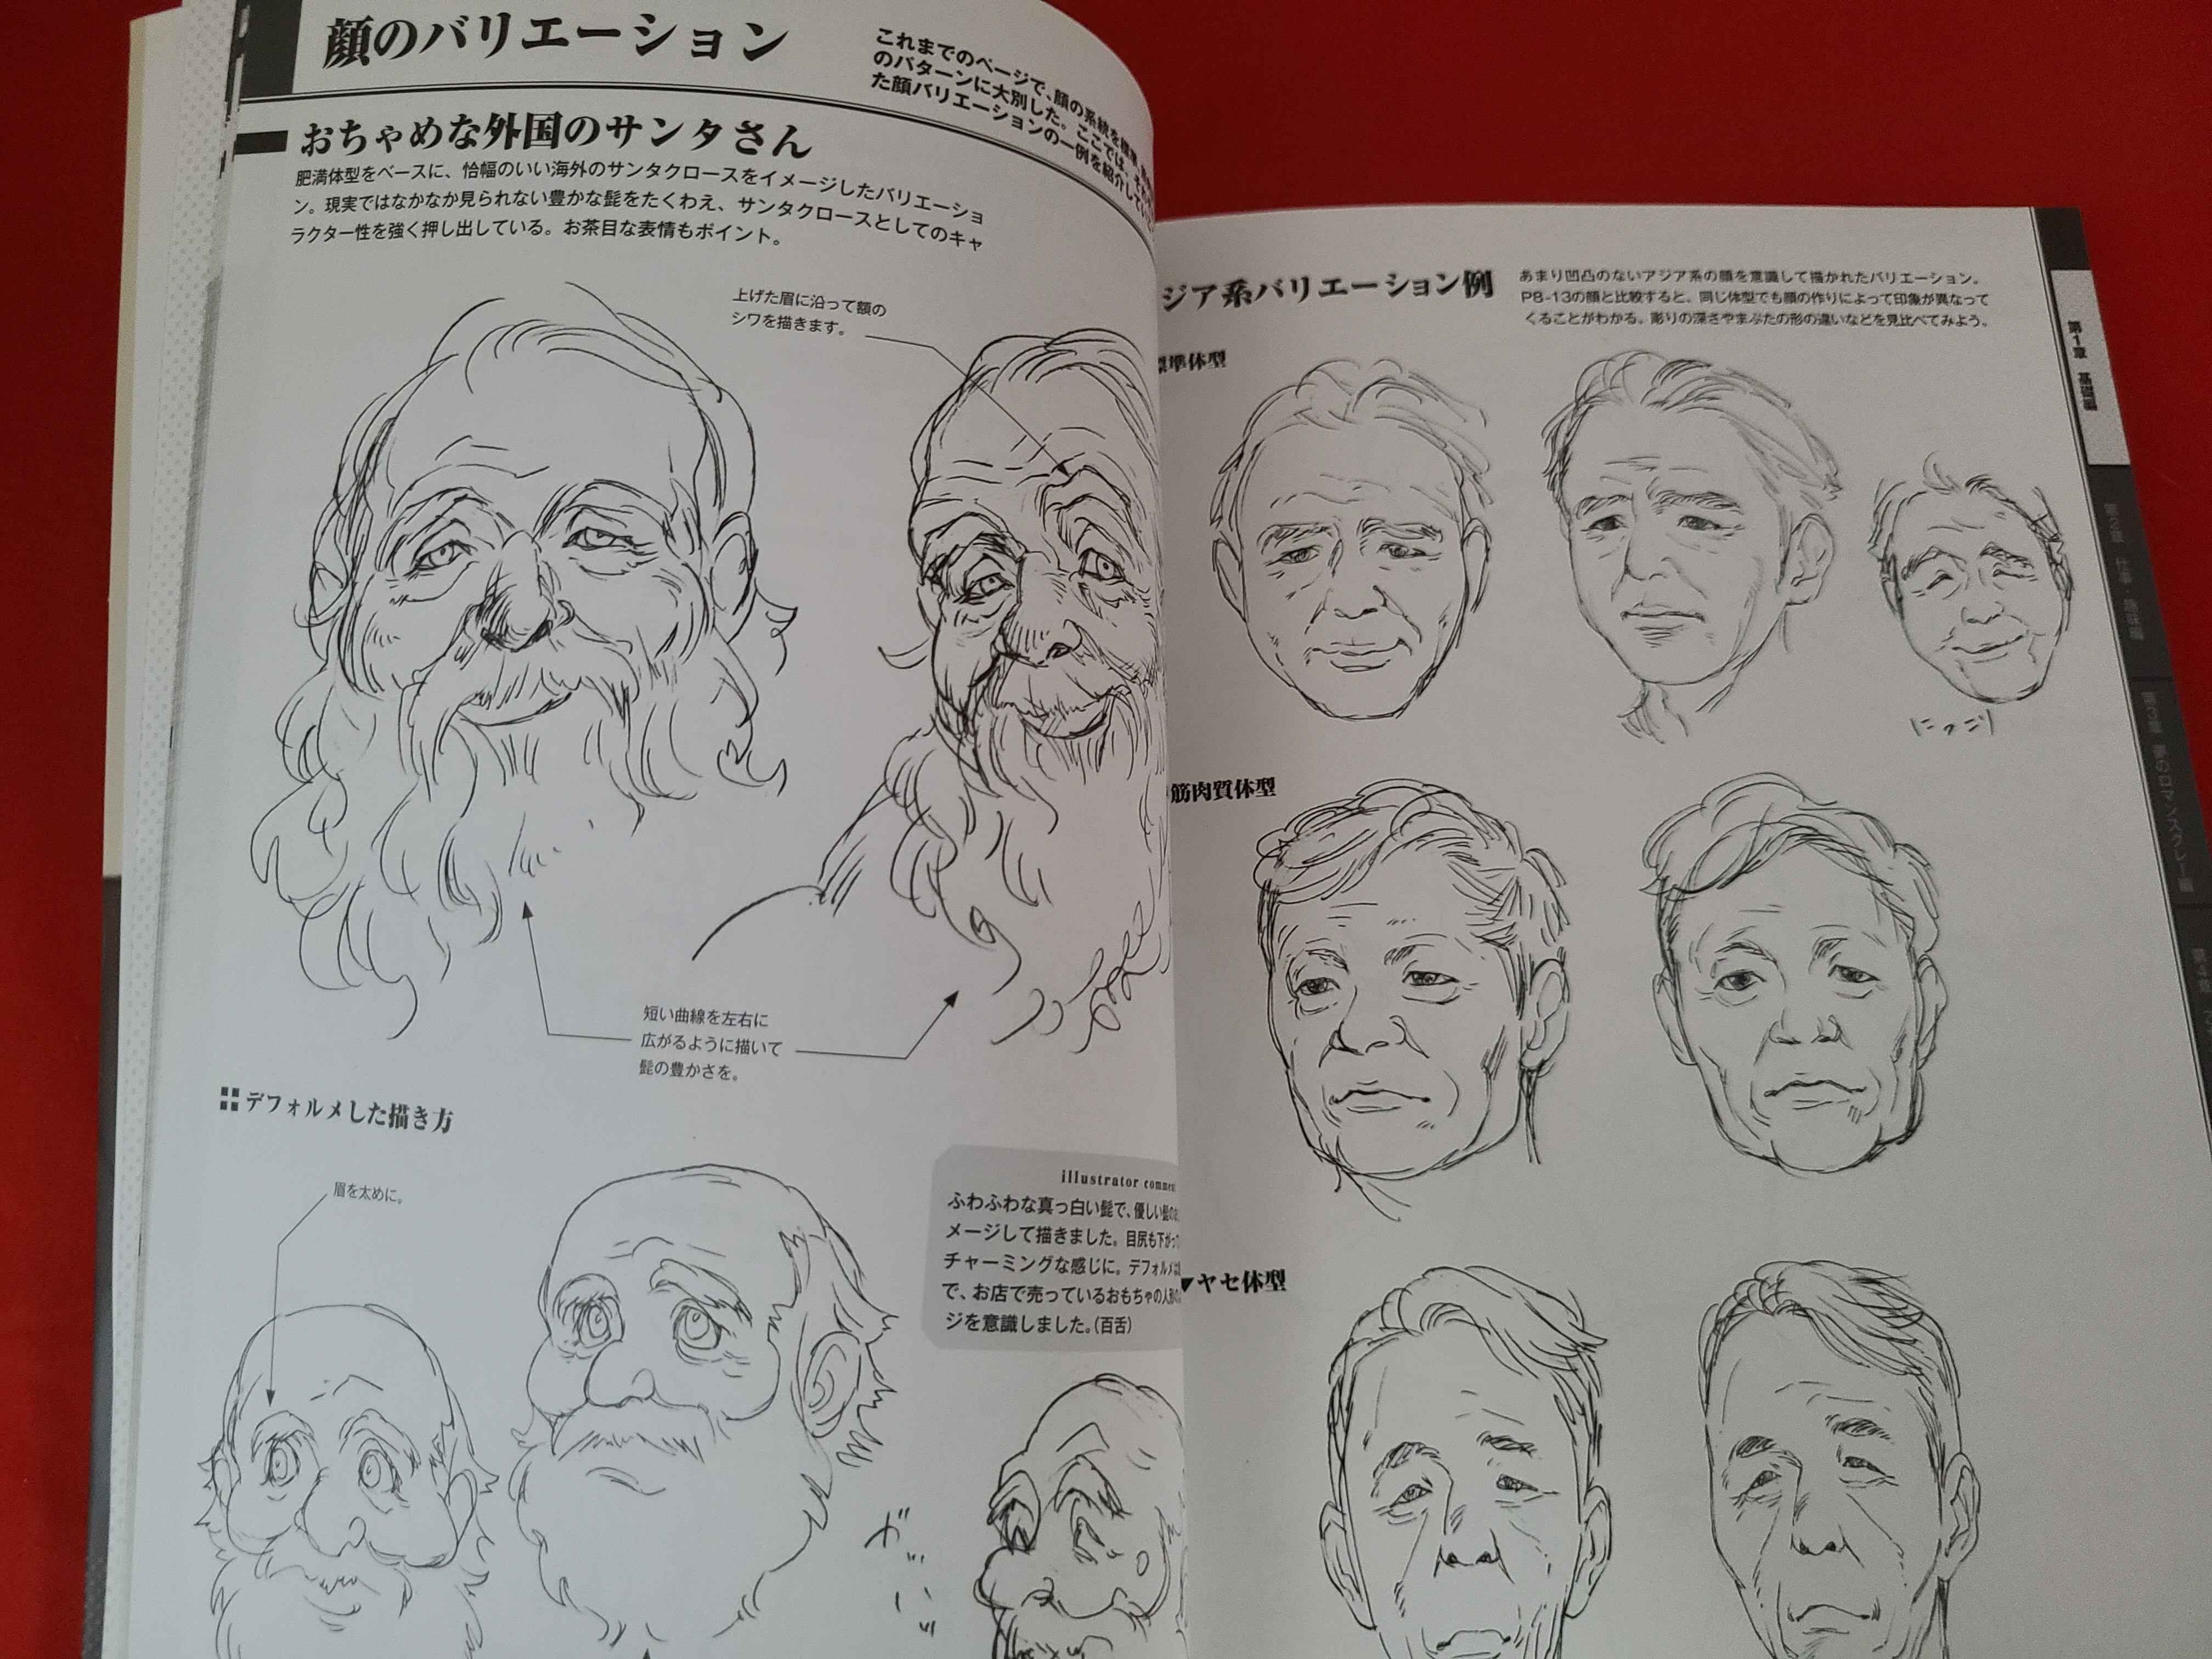 顔のバリエーション
これまでのページで、顔の系統を標準、
のパターンに大別した。ここでは、
た顔バリエーションの一例を紹介してい
おちゃめな外国のサンタさん
肥満体型をベースに、恰幅のいい海外のサンタクロースをイメージしたバリエーショ
ン。現実ではなかなか見られない豊かな髭をたくわえ、サンタクロースとしてのキャ
ラクター性を強く押し出している。お茶目な表情もポイント。
上げた眉に沿って額の
シワを描きます。
短い曲線を左右に
広がるように描いて
髭の豊かさを。
デフォルメした描き方
眉を太めに。
illustrator comment
ふわふわな真っ白い髭で、優しい
メージして描きました。目尻も下がっ
チャーミングな感じに。デフォルメは
で、お店で売っているおもちゃの人形の
ジを意識しました。(百舌)
ジア系バリエーション例
あまり凹凸のないアジア系の顔を意識して描かれたバリエーション。
P8-13の顔と比較すると、同じ体型でも顔の作りによって印象が異なって
くることがわかる。彫りの深さやまぶたの形の違いなどを見比べてみよう。
標準体型
にっこり
筋肉質体型
▼ヤセ体型
第1章 基礎編
第2章 仕事・趣味編
第3章 夢のロマンスグレー編
第4章